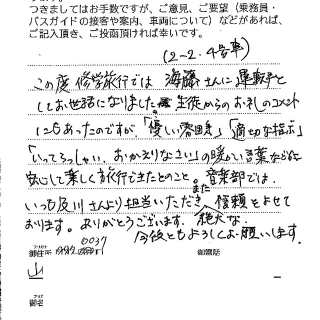 つきましてはお手数ですが、ご意見、ご要望(乗務員・
バスガイドの接客や案内、車両について)などがあれば、
ご記入頂き、ご投函頂ければ幸いです。
(2-2. 4号車)
この度 修学旅行では 海藤さんに運転手と
してお世話になりました。生徒からのお礼のコメント
にもあったのですが、「優しい雰囲気」「適切な指示」
「いってらっしゃい、おかえりなさい」の暖かい言葉などに
安心して楽しく旅行できたとのこと。また 音楽部では、
いつも及川さんより担当いただき、絶大な 信頼をよせて
おります。ありがとうございます。
今後ともよろしくお願いします。
フリガナ
御住所
0037
御電話
山
フリガナ
御名